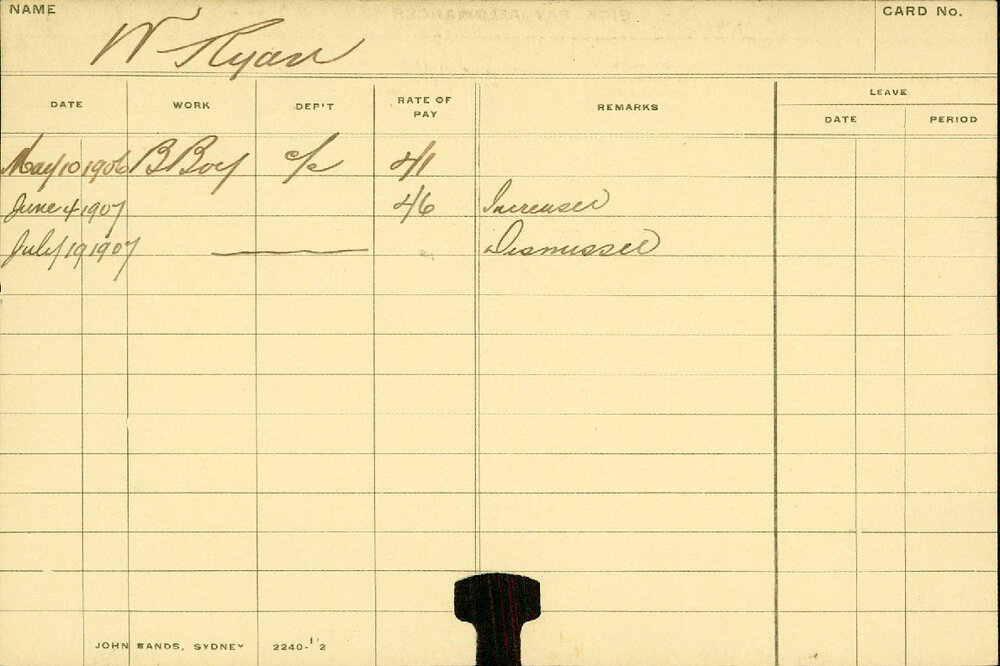 NAME
CARD No.
W Ryan
DATE WORK DEP'T RATE OF PAY REMARKS LEAVE
DATE PERIOD
May 10 1906 B Boy c/c 4/1
June 4 1907 4/6 Increased
July 19 1907 Dismissed
JOHN SANDS, SYDNEY 2240-1/2